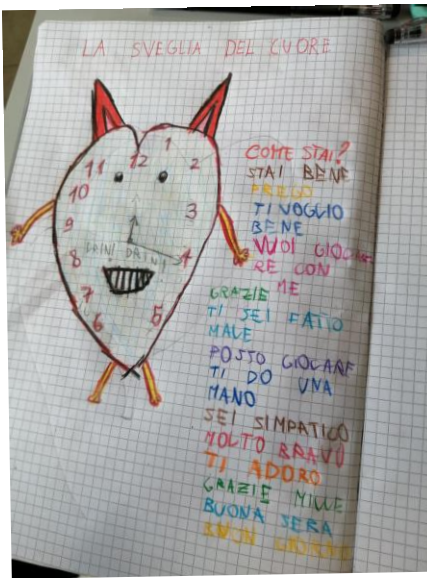 LA SVEGLIA DEL CUORE
12
1
2
3
4
5
6
7
8
9
10
11
DRIN! DRIN!
COME STAI?
STAI BENE
PREGO
TI VOGLIO
BENE
VUOI GIOCA
RE CON
ME
GRAZIE
TI SEI FATTO
MALE
POSSO GIOCARE
TI DO UNA
MANO
SEI SIMPATICO
MOLTO BRAVO
TI ADORO
GRAZIE MILLE
BUONA SERA
BUON GIORNO